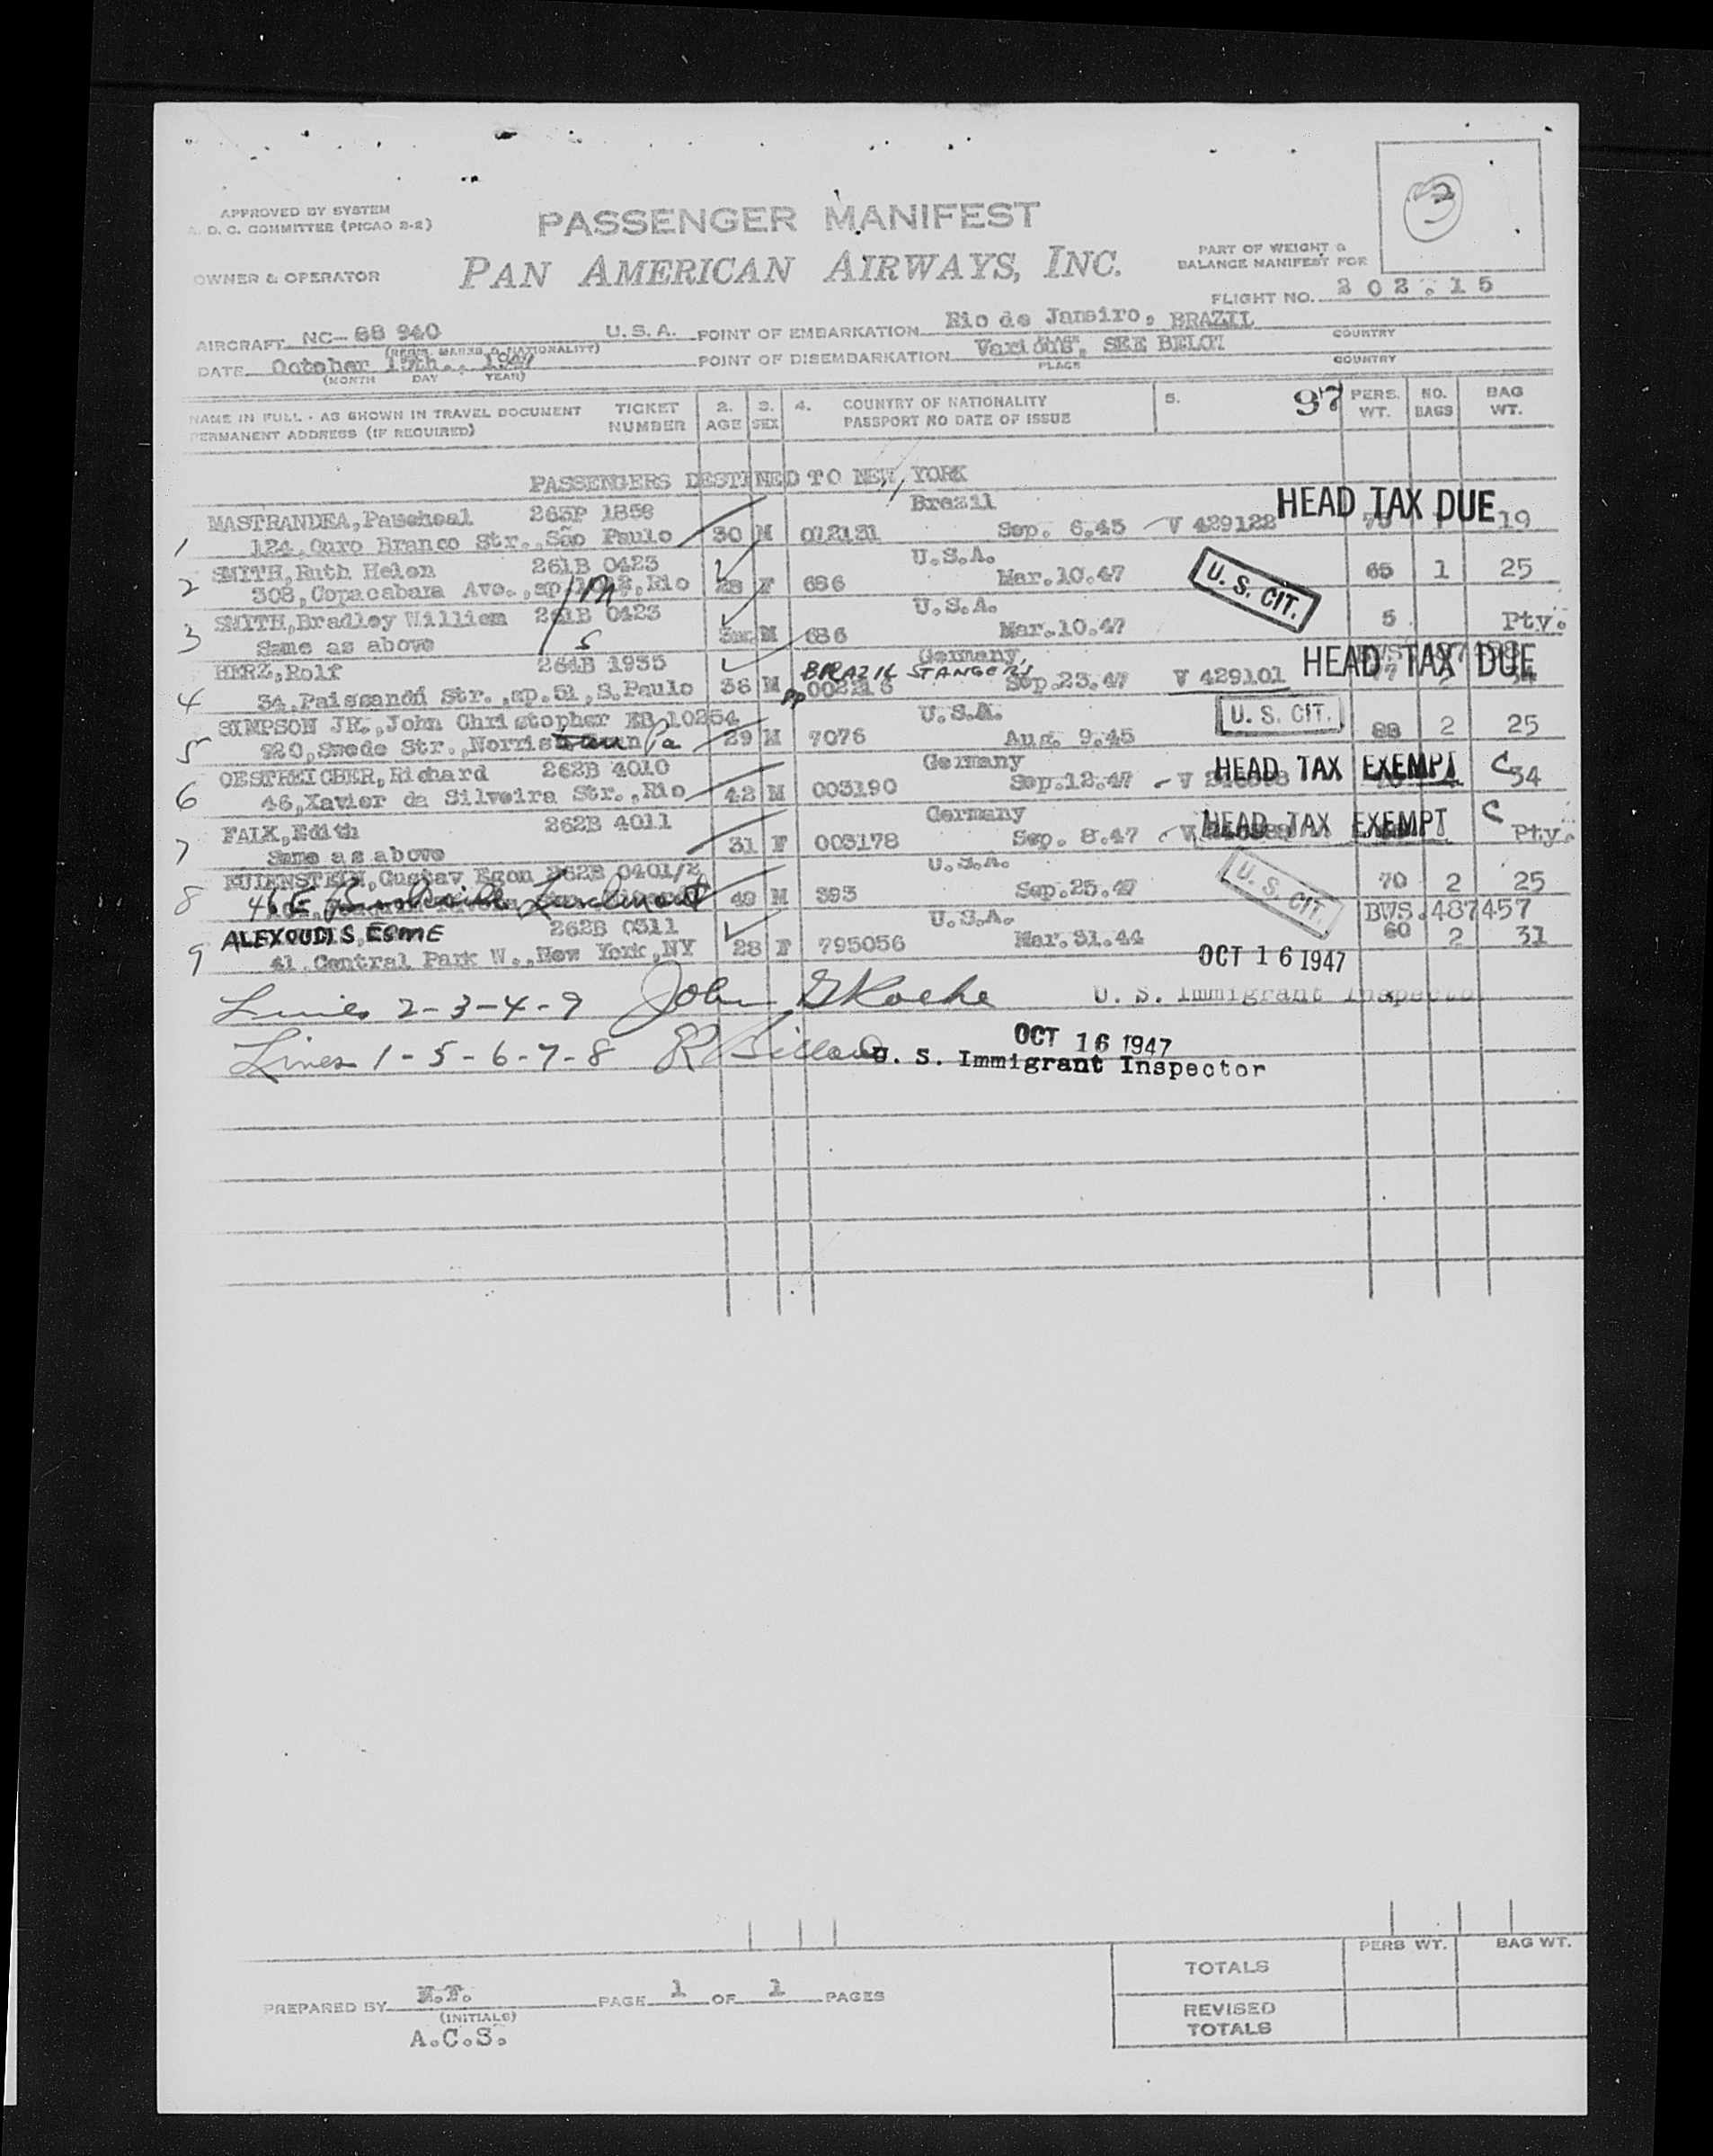 APPROVED BY SYSTEM
A. D. C. COMMITTEE (PICAO 2-2)
PASSENGER MANIFEST
3
OWNER & OPERATOR
PAN AMERICAN AIRWAYS, INC.
PART OF WEIGHT &
BALANCE MANIFEST FOR
FLIGHT NO. 202.15
AIRCRAFT NC-88 940 U.S.A.
(REGN. MARKS & NATIONALITY)
POINT OF EMBARKATION Rio de Janeiro, BRAZIL
PLACE COUNTRY
DATE October 15th., 1947
(MONTH DAY YEAR)
POINT OF DISEMBARKATION Various, SEE BELOW
PLACE COUNTRY
NAME IN FULL - AS SHOWN IN TRAVEL DOCUMENT
PERMANENT ADDRESS (IF REQUIRED)
TICKET NUMBER
2. AGE
3. SEX
4. COUNTRY OF NATIONALITY
PASSPORT NO DATE OF ISSUE
5. 97
PERS. WT.
NO. BAGS
BAG WT.
PASSENGERS DESTINED TO NEW YORK
MASTRANDEA, Pascheal 263P 1858 Brazil HEAD TAX DUE
1 124, Ouro Branco Str., São Paulo 30 M 072131 Sep. 6.45 V 429122 19
SMITH, Ruth Helen 261B 0423 U.S.A.
2 308, Copacabana Ave., ap. Rio 28 F 686 Mar.10.47 U. S. CIT. 65 1 25
M
SMITH, Bradley William 261B 0423 U.S.A.
3 Same as above S M 686 Mar.10.47 5 Pty.
HERZ, Rolf 264B 1935 Germany HEAD TAX DUE
BRAZIL STANGER'S
4 34, Paissandú Str., ap.51, S.Paulo 36 M PP 002216 Sep.23.47 V 429101 77 2 34
SIMPSON JR., John Christopher EB 10254 U.S.A.
5 920, Swede Str., Norristown Pa 29 M 7076 Aug. 9.45 U. S. CIT. 88 2 25
OESTREICHER, Richard 262B 4010 Germany HEAD TAX EXEMPT C
6 46, Xavier da Silveira Str., Rio 42 M 003190 Sep.12.47 V 34
FALK, Edith 262B 4011 Germany HEAD TAX EXEMPT C
7 Same as above 31 F 003178 Sep. 8.47 V Pty.
EULENSTEIN, Gustav Egon 262B 0401/2 U.S.A.
8 46 E Larchmont 49 M 393 Sep.25.47 U. S. CIT. 70 2 25
ALEXOUDIS, ESME 262B 0311 U.S.A. BWS.487457
9 41, Central Park W., New York, NY 28 F 795056 Mar.31.44 60 2 31
OCT 16 1947
Lines 2-3-4-9 John G Roche U. S. Immigrant Inspector
Lines 1-5-6-7-8 OCT 16 1947
U. S. Immigrant Inspector
PERS WT. BAG WT.
TOTALS
REVISED
TOTALS
PREPARED BY
(INITIALS)
A.C.S.
PAGE 1 OF 1 PAGES